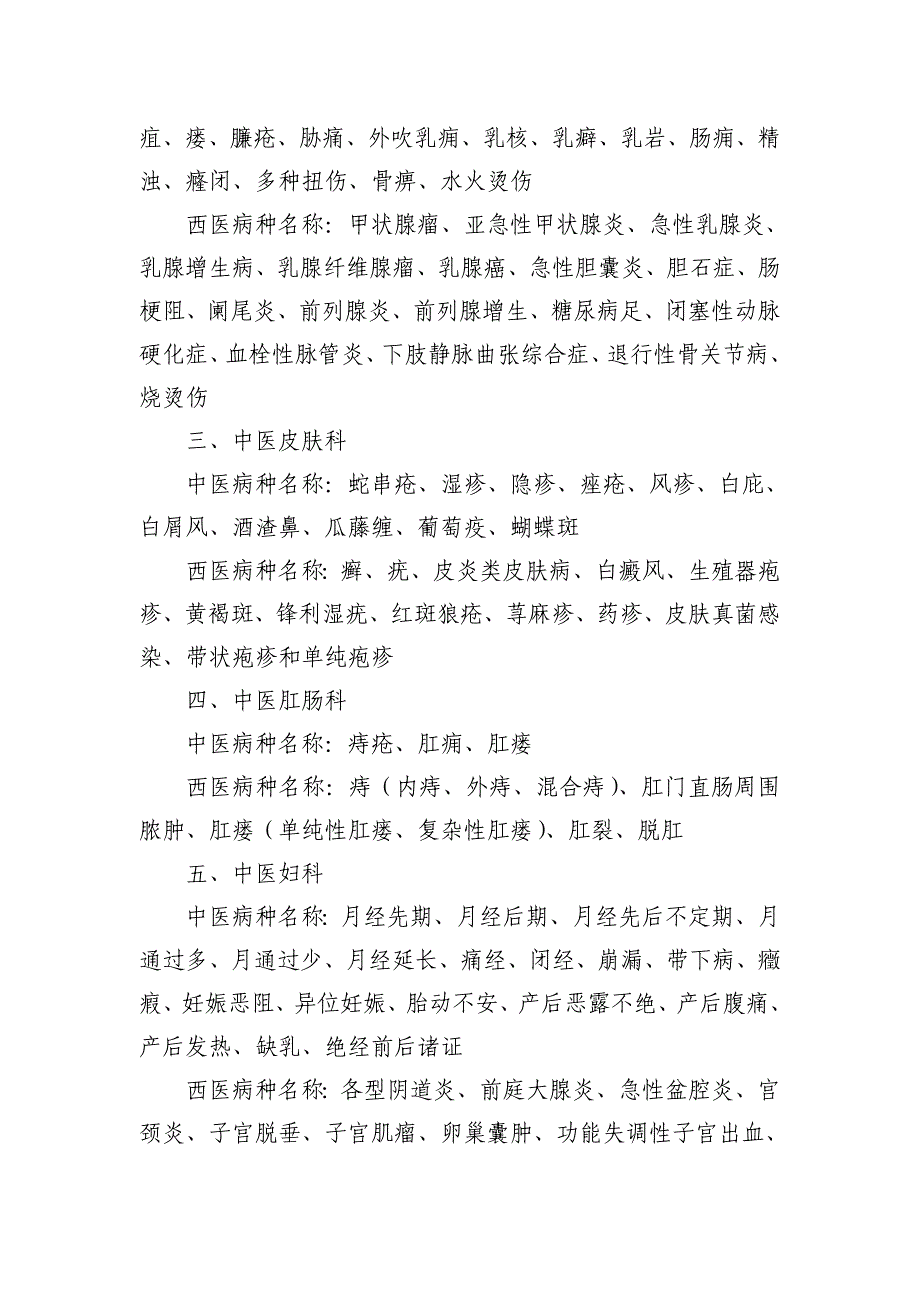 疽、瘘、臁疮、胁痛、外吹乳痈、乳核、乳癖、乳岩、肠痈、精
浊、癃闭、多种扭伤、骨痹、水火烫伤
西医病种名称：甲状腺瘤、亚急性甲状腺炎、急性乳腺炎、
乳腺增生病、乳腺纤维腺瘤、乳腺癌、急性胆囊炎、胆石症、肠
梗阻、阑尾炎、前列腺炎、前列腺增生、糖尿病足、闭塞性动脉
硬化症、血栓性脉管炎、下肢静脉曲张综合症、退行性骨关节病、
烧烫伤
三、中医皮肤科
中医病种名称：蛇串疮、湿疹、隐疹、痤疮、风疹、白庇、
白屑风、酒渣鼻、瓜藤缠、葡萄疫、蝴蝶斑
西医病种名称：癣、疣、皮炎类皮肤病、白癜风、生殖器疱
疹、黄褐斑、锋利湿疣、红斑狼疮、荨麻疹、药疹、皮肤真菌感
染、带状疱疹和单纯疱疹
四、中医肛肠科
中医病种名称：痔疮、肛痈、肛瘘
西医病种名称：痔（内痔、外痔、混合痔）、肛门直肠周围
脓肿、肛瘘（单纯性肛瘘、复杂性肛瘘）、肛裂、脱肛
五、中医妇科
中医病种名称：月经先期、月经后期、月经先后不定期、月
通过多、月通过少、月经延长、痛经、闭经、崩漏、带下病、癥
瘕、妊娠恶阻、异位妊娠、胎动不安、产后恶露不绝、产后腹痛、
产后发热、缺乳、绝经前后诸证
西医病种名称：各型阴道炎、前庭大腺炎、急性盆腔炎、宫
颈炎、子宫脱垂、子宫肌瘤、卵巢囊肿、功能失调性子宫出血、